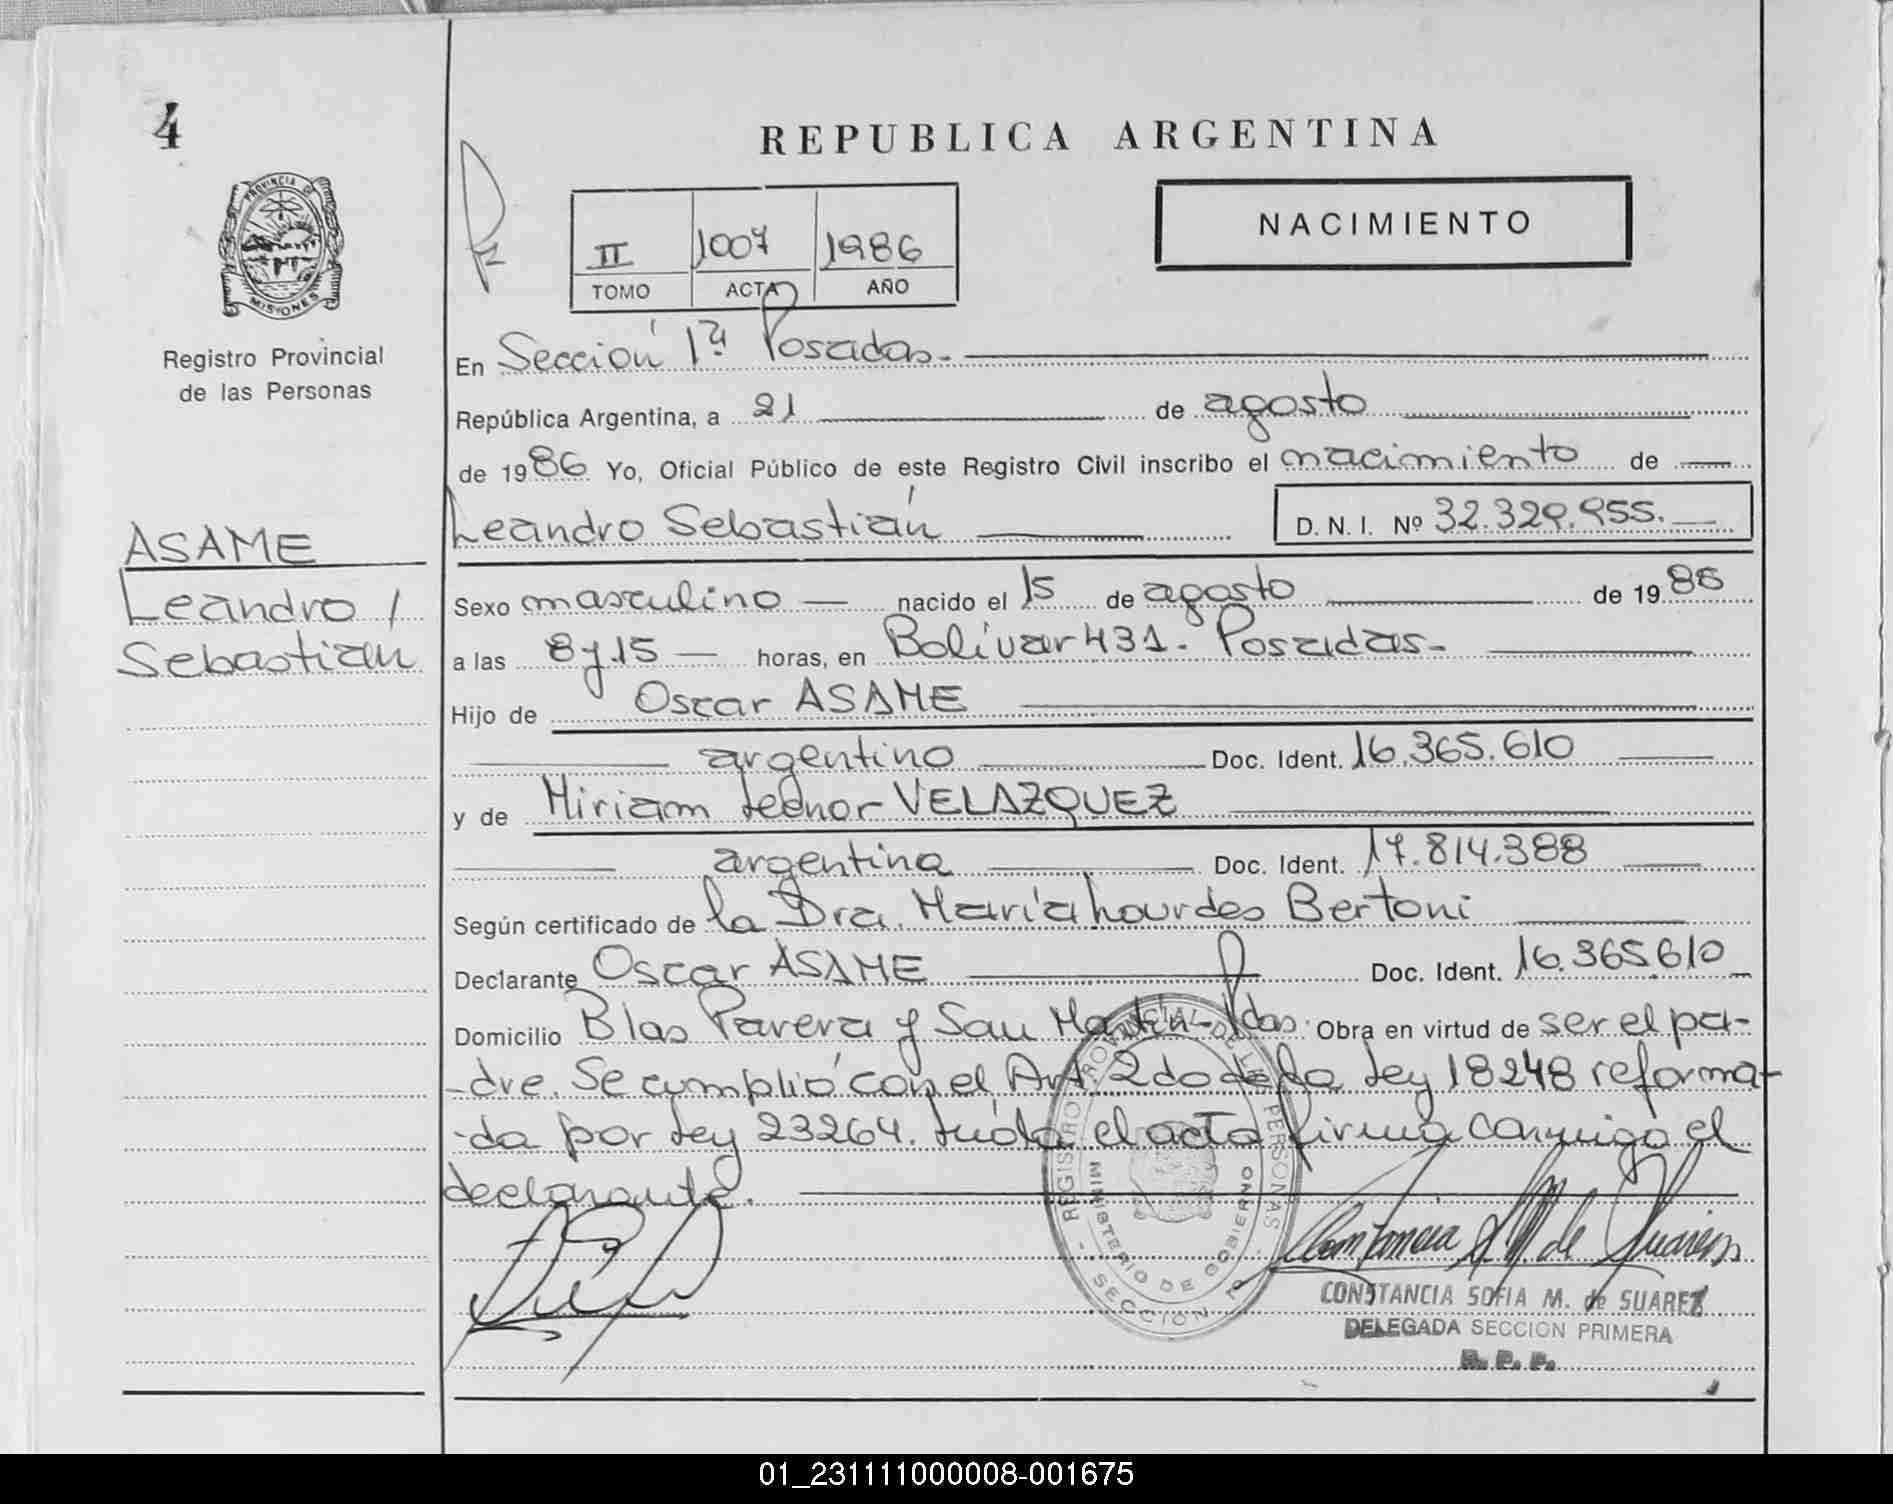 4
REPUBLICA ARGENTINA
PROVINCIA DE
MISIONES
NACIMIENTO
II 1007 1986
TOMO ACTA AÑO
Registro Provincial
de las Personas
En Sección 1ª Posadas.
República Argentina, a 21 de agosto
de 1986 Yo, Oficial Público de este Registro Civil inscribo el nacimiento de
Leandro Sebastián D. N. I. Nº 32.329.955.
ASAME
Leandro /
Sebastian
Sexo masculino nacido el 15 de agosto de 1986
a las 8 y 15 horas, en Bolívar 431. Posadas.
Hijo de Oscar ASAME
argentino Doc. Ident. 16.365.610
y de Miriam Leonor VELAZQUEZ
argentina Doc. Ident. 17.814.388
Según certificado de la Dra. María Lourdes Bertoni
Declarante Oscar ASAME Doc. Ident. 16.365.610
Domicilio Blas Parera y San Martín - Pdas. Obra en virtud de ser el pa-
-dre. Se cumplió con el Art. 2do de la Ley 18248 reforma-
-da por Ley 23264. Leída el acta firma conmigo el
declarante.
REGISTRO PROVINCIAL DE LAS PERSONAS
MINISTERIO DE GOBIERNO
SECCION
Constancia S. M. de Suarez
CONSTANCIA SOFIA M. de SUAREZ
DELEGADA SECCION PRIMERA
R. P. P.
01_231111000008-001675